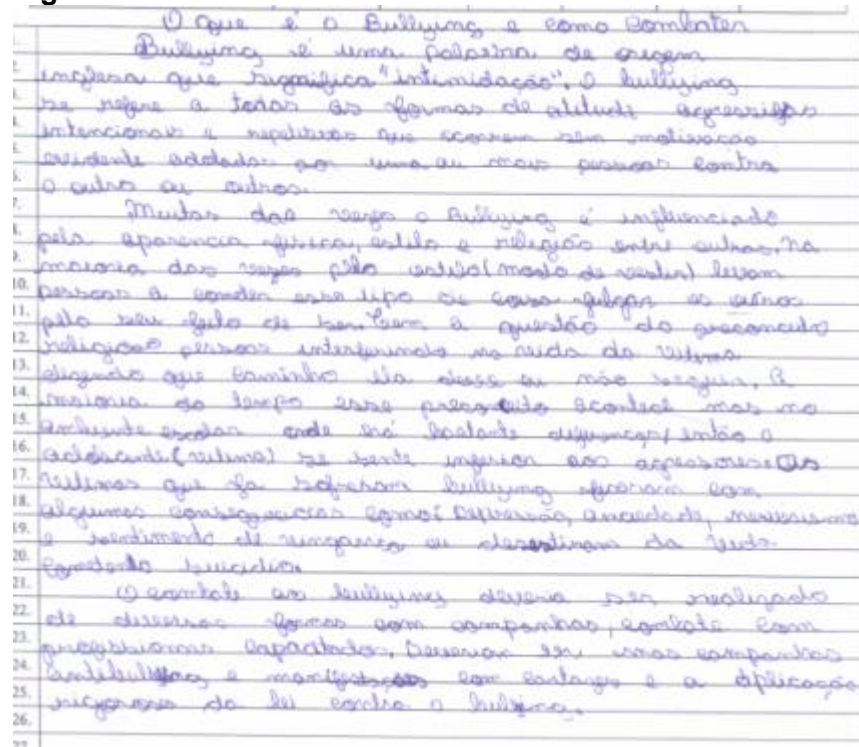 O que é o Bullying e como Combater
1. Bullying é uma palavra de origem
2. inglesa que significa "intimidação". O bullying
3. se refere a todas as formas de atitude agressivas
4. intencionais e repetitivas que ocorrem sem motivação
5. evidente adotadas por uma ou mais pessoas contra
6. o outro ou outros.
7. Muitas das vezes o Bullying é influenciado
8. pela aparencia fisica, estilo e religião entre outras. Na
9. maioria das vezes pelo estilo (modo de vestir) levam
10. pessoas a esse tipo de coisa julgar os outros
11. pelo seu jeito de ser. Tem a questão do preconceito
12. religioso pessoas interferindo na vida da vitima
13. dizendo que caminho ela deve ou não seguir. A
14. maioria do tempo esse acontece mas no
15. ambiente escolar onde há bastante diferenças, então o
16. adolescente (vitima) se sente inferior aos agressores. As
17. vitimas que ja sofreram bullying ficaram com
18. algumas como: Depressão, ansiedade, nervosismo
19. e sentimento de vingança ou da vida
20. suicidio.
21. O combate ao bullying deveria ser realizado
22. de diversas formas com campanhas, combate com
23. profissionais capacitados, Deveriam ser mas campanhas
24. antibullying e manifestações com cartazes e a aplicação
25. da lei contra o bullying.
26.
27.